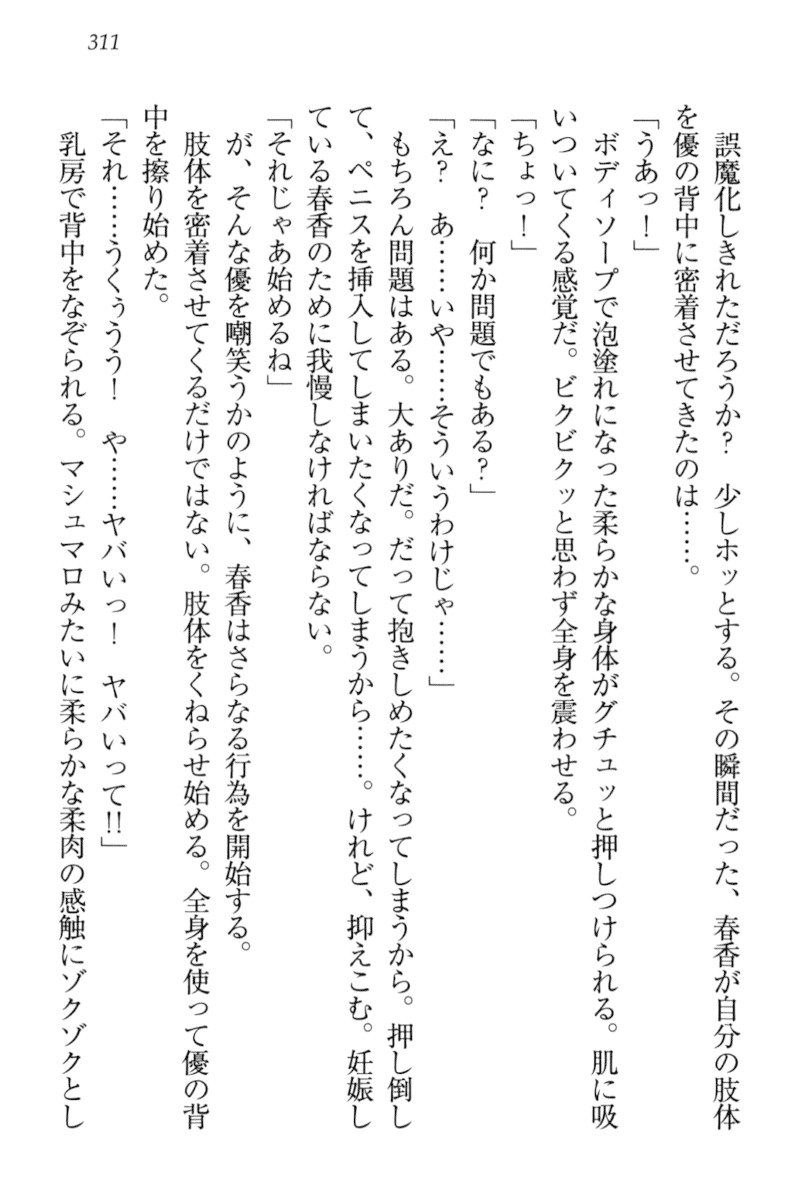 311
誤魔化しきれただろうか？　少しホッとする。その瞬間だった、春香が自分の肢体
を優の背中に密着させてきたのは……。
「うあっ！」
ボディソープで泡塗れになった柔らかな身体がグチュッと押しつけられる。肌に吸
いついてくる感覚だ。ビクビクッと思わず全身を震わせる。
「ちょっ！」
「なに？　何か問題でもある？」
「え？　あ……いや……そういうわけじゃ……」
もちろん問題はある。大ありだ。だって抱きしめたくなってしまうから。押し倒し
て、ペニスを挿入してしまいたくなってしまうから……。けれど、抑えこむ。妊娠し
ている春香のために我慢しなければならない。
「それじゃあ始めるね」
が、そんな優を嘲笑うかのように、春香はさらなる行為を開始する。
肢体を密着させてくるだけではない。肢体をくねらせ始める。全身を使って優の背
中を擦り始めた。
「それ……うくぅうう！　や……ヤバいっ！　ヤバいって!!」
乳房で背中をなぞられる。マシュマロみたいに柔らかな柔肉の感触にゾクゾクとし